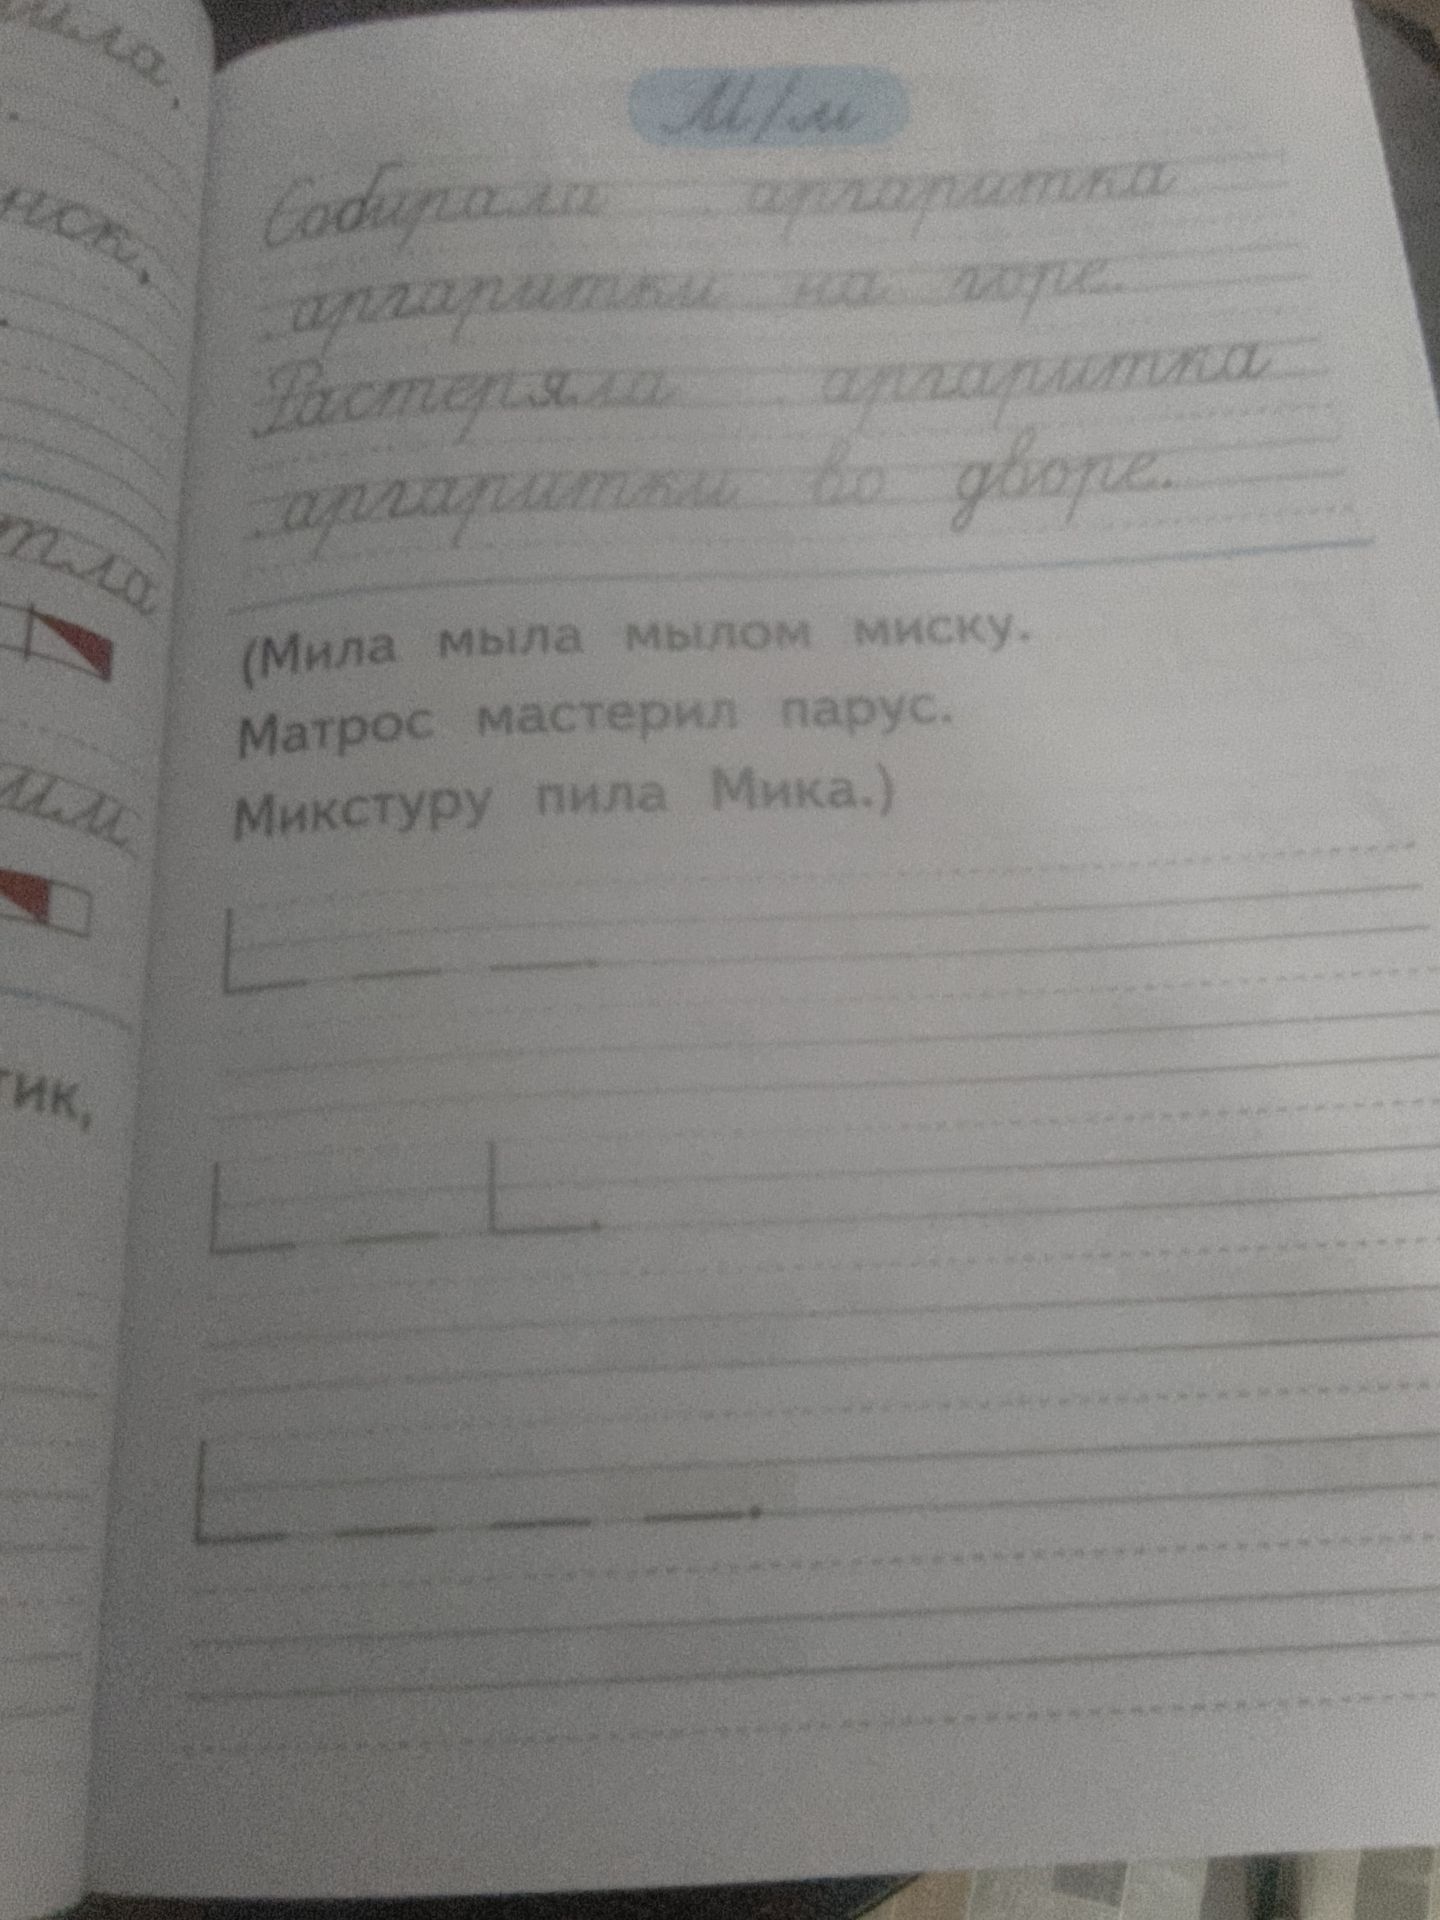 М/м
Собирала аргаритка
аргаритки на горе.
Растеряла аргаритка
аргаритки во дворе.
(Мила мыла мылом миску.
Матрос мастерил парус.
Микстуру пила Мика.)